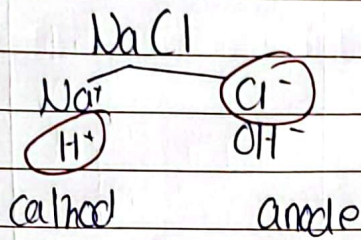 NaCl
Na⁺ Cl⁻
H⁺ OH⁻
calhod anode